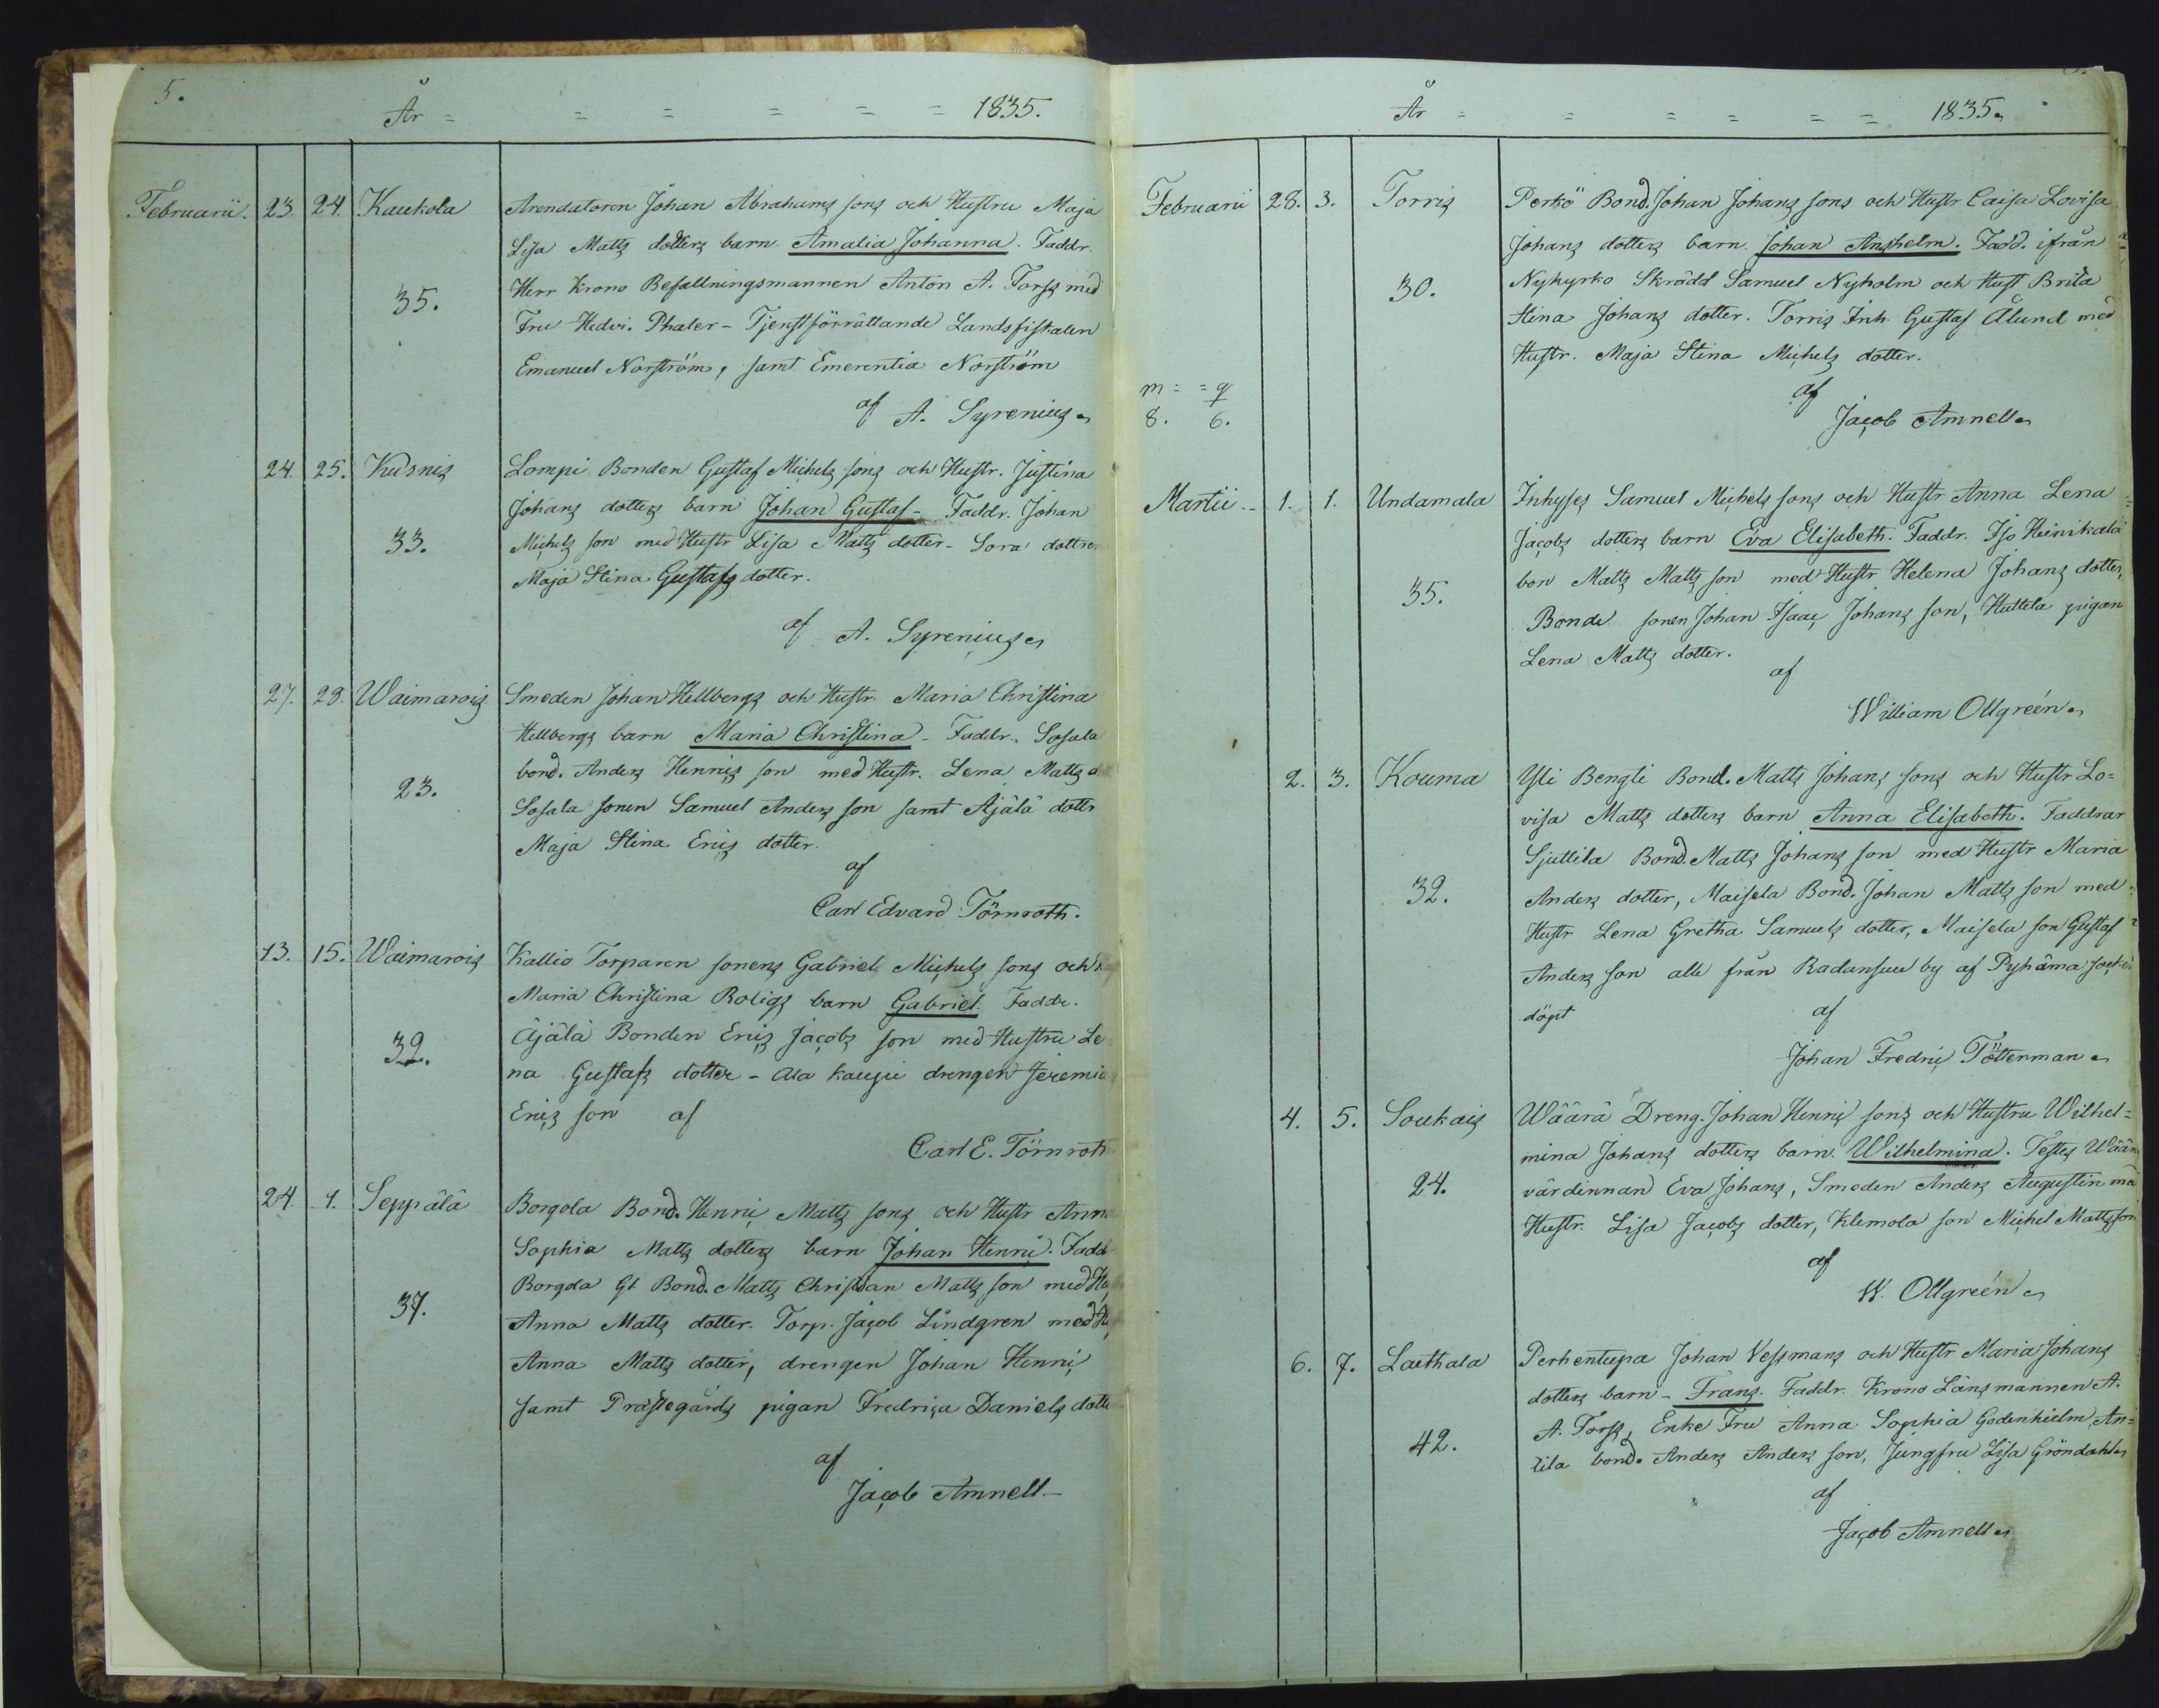 5.
År = = = = = = 1835.
Februarii. 23. 24. Kaukola Arendatoren Johan Abrahams sons och Hustru Maja
Lisa Matts dotters barn Amalia Johanna. Faddr.
Herr Krono Befallningsmannen Anton A. Forss med
35.
Fru Hedvi. Phaler - Tjenstförrättande Landsfiskalen
Emanuel Norström, samt Emerentia Norström
af A. Syrenius
24. 25. Kusnis Lompi Bonden Gustaf Michels sons och Hustr. Justina
Johans dotters barn Johan Gustaf - Faddr. Johan
33. Michels son med Hustr Lisa Matts dotter - Sora dottren
Maja Stina Gustafs dotter.
af A. Syrenius
27. 28. Waimarois Smeden Johan Hellbergs och Hustr. Maria Christina
Hellbergs barn Maria Christina - Faddr. Sosala
bond. Anders Henrics son med Hustr. Lena Matts d
23.
Sosala sonen Samuel Anders son samt Äjälä dottr
Maja Stina Erics dotter.
af
Carl Edvard Törnroth.
13. 15. Waimarois Kallio Torparen sonens Gabriel Michels sons och
Maria Christina Roligs barn Gabriel. Faddr.
Äjälä Bonden Erics Jacobs son med Hustru Le
32.
na Gustafs dotter - Ala kauppi drengen Jeremia
Erics son af
Carl E. Törnroth
24. 1. Seppälä Borgola Bond. Henric Matts sons och Hustr Anna
Sophia Matts dotters barn Johan Henric. Fadd
Borgola Gl Bond. Matts Christian Matts son med Hu
37.
Anna Matts dotter. Torp. Jacob Lindgren med Hu
Anna Matts dotter, drengen Johan Henric
samt Prästegårds pigan Fredrica Daniels dotte
af
Jacob Amnell -
År = = = = = = 1835.
Februarii 28. 3. Torris Perkö Bond. Johan Johans sons och Hustr Caisa Lovisa
Johans dotters barn Johan Anshelm. Fadd. ifrån
30. Nykyrko Skrädd Samuel Nyholm och Hust Brita
Stina Johans dotter. Torris Inh. Gustaf Ålund med
Hustr. Maja Stina Michels dotter.
m = = q
af
8. 6.
Jacob Amnell
Martii - 1. 1. Undamala Inhyses Samuel Michels sons och Hustr Anna Lena
Jacobs dotters barn Eva Elisabeth. Faddr. Iso Heinikala
35. bon Matts Matts son med Hustr Helena Johans dotter,
Bonde sonen Johan Isaac Johans son, Huttela pigan
Lena Matts dotter.
af
William Ollgreén
2. 3. Kouma Yli Bengti Bond. Matts Johans sons och Hustr Lo=
visa Matts dotters barn Anna Elisabeth. Faddrar
Sjuttila Bond. Matts Johans son med Hustr Maria
32. Anders dotter, Maisela Bond. Johan Matts son med
Hustr Lena Gretha Samuels dotter, Maisela son Gustaf
Anders son alla från Radansuu by af Pyhäma socken
döpt af
Johan Fredric Töttenman
4. 5. Soukais Wäärä Dreng. Johan Henric sons och Hustru Wilhel=
mina Johans dotters barn Wilhelmina. Testes Wäärä
24. värdinnan Eva Johans, Smeden Anders Augustin må
Hustr. Lisa Jacobs dotter, Klemola son Michel Mattsson
af
W. Ollgreén
6. 7. Laethala Perhentupa Johan Vessmans och Hustr Maria Johans
dotters barn - Frans. Faddr. Krono Länsmannen A.
42. A. Forss, Enke Fru Anna Sophia Godenhielm, An=
tila bond. Anders Anders son, Jungfru Lisa Gröndahl
af
Jacob Amnell